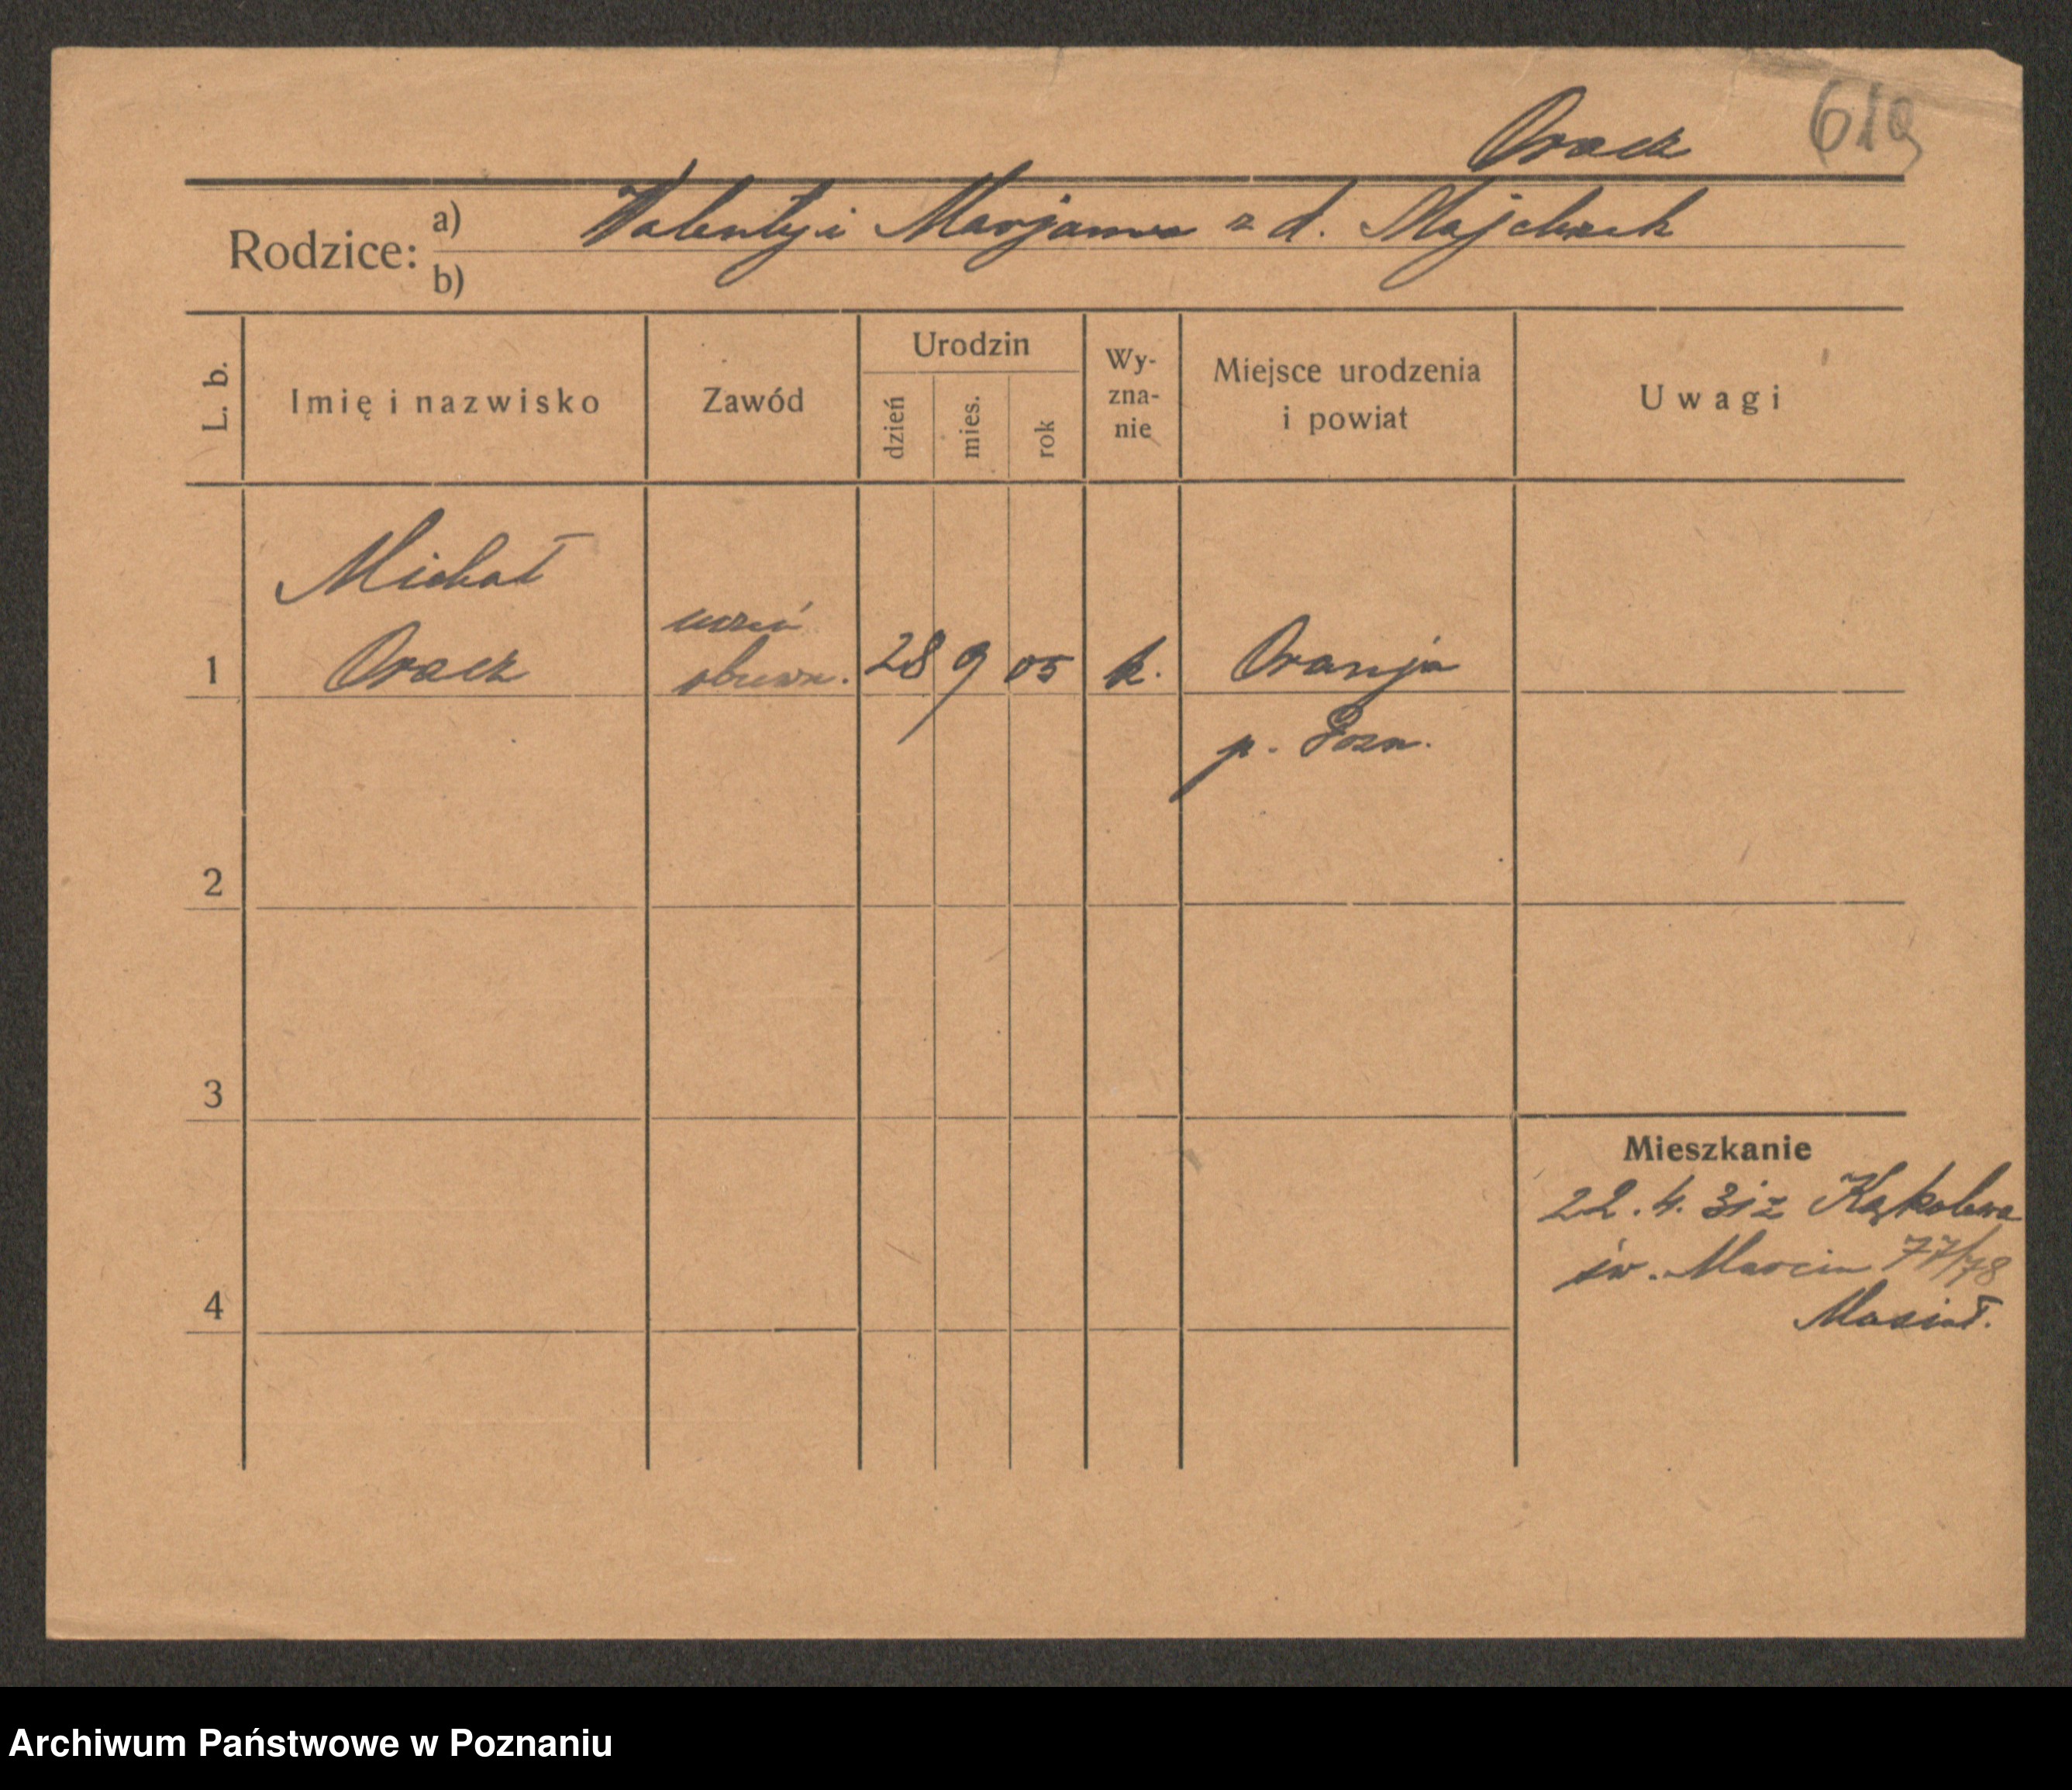 Oracz
619
Rodzice: a) Walenty i Marjanna z d. Majchrzak
b)
L. b.
Imię i nazwisko
Zawód
Urodzin
dzień
mies.
rok
Wy-
zna-
nie
Miejsce urodzenia
i powiat
Uwagi
Michał
uczeń
1 Oracz obuwn. 28 9 05 k. Oranja
p. Pozn.
2
3
Mieszkanie
22.4.31 z Kąkolewa
św. Marcin 77/78
4
Archiwum Państwowe w Poznaniu